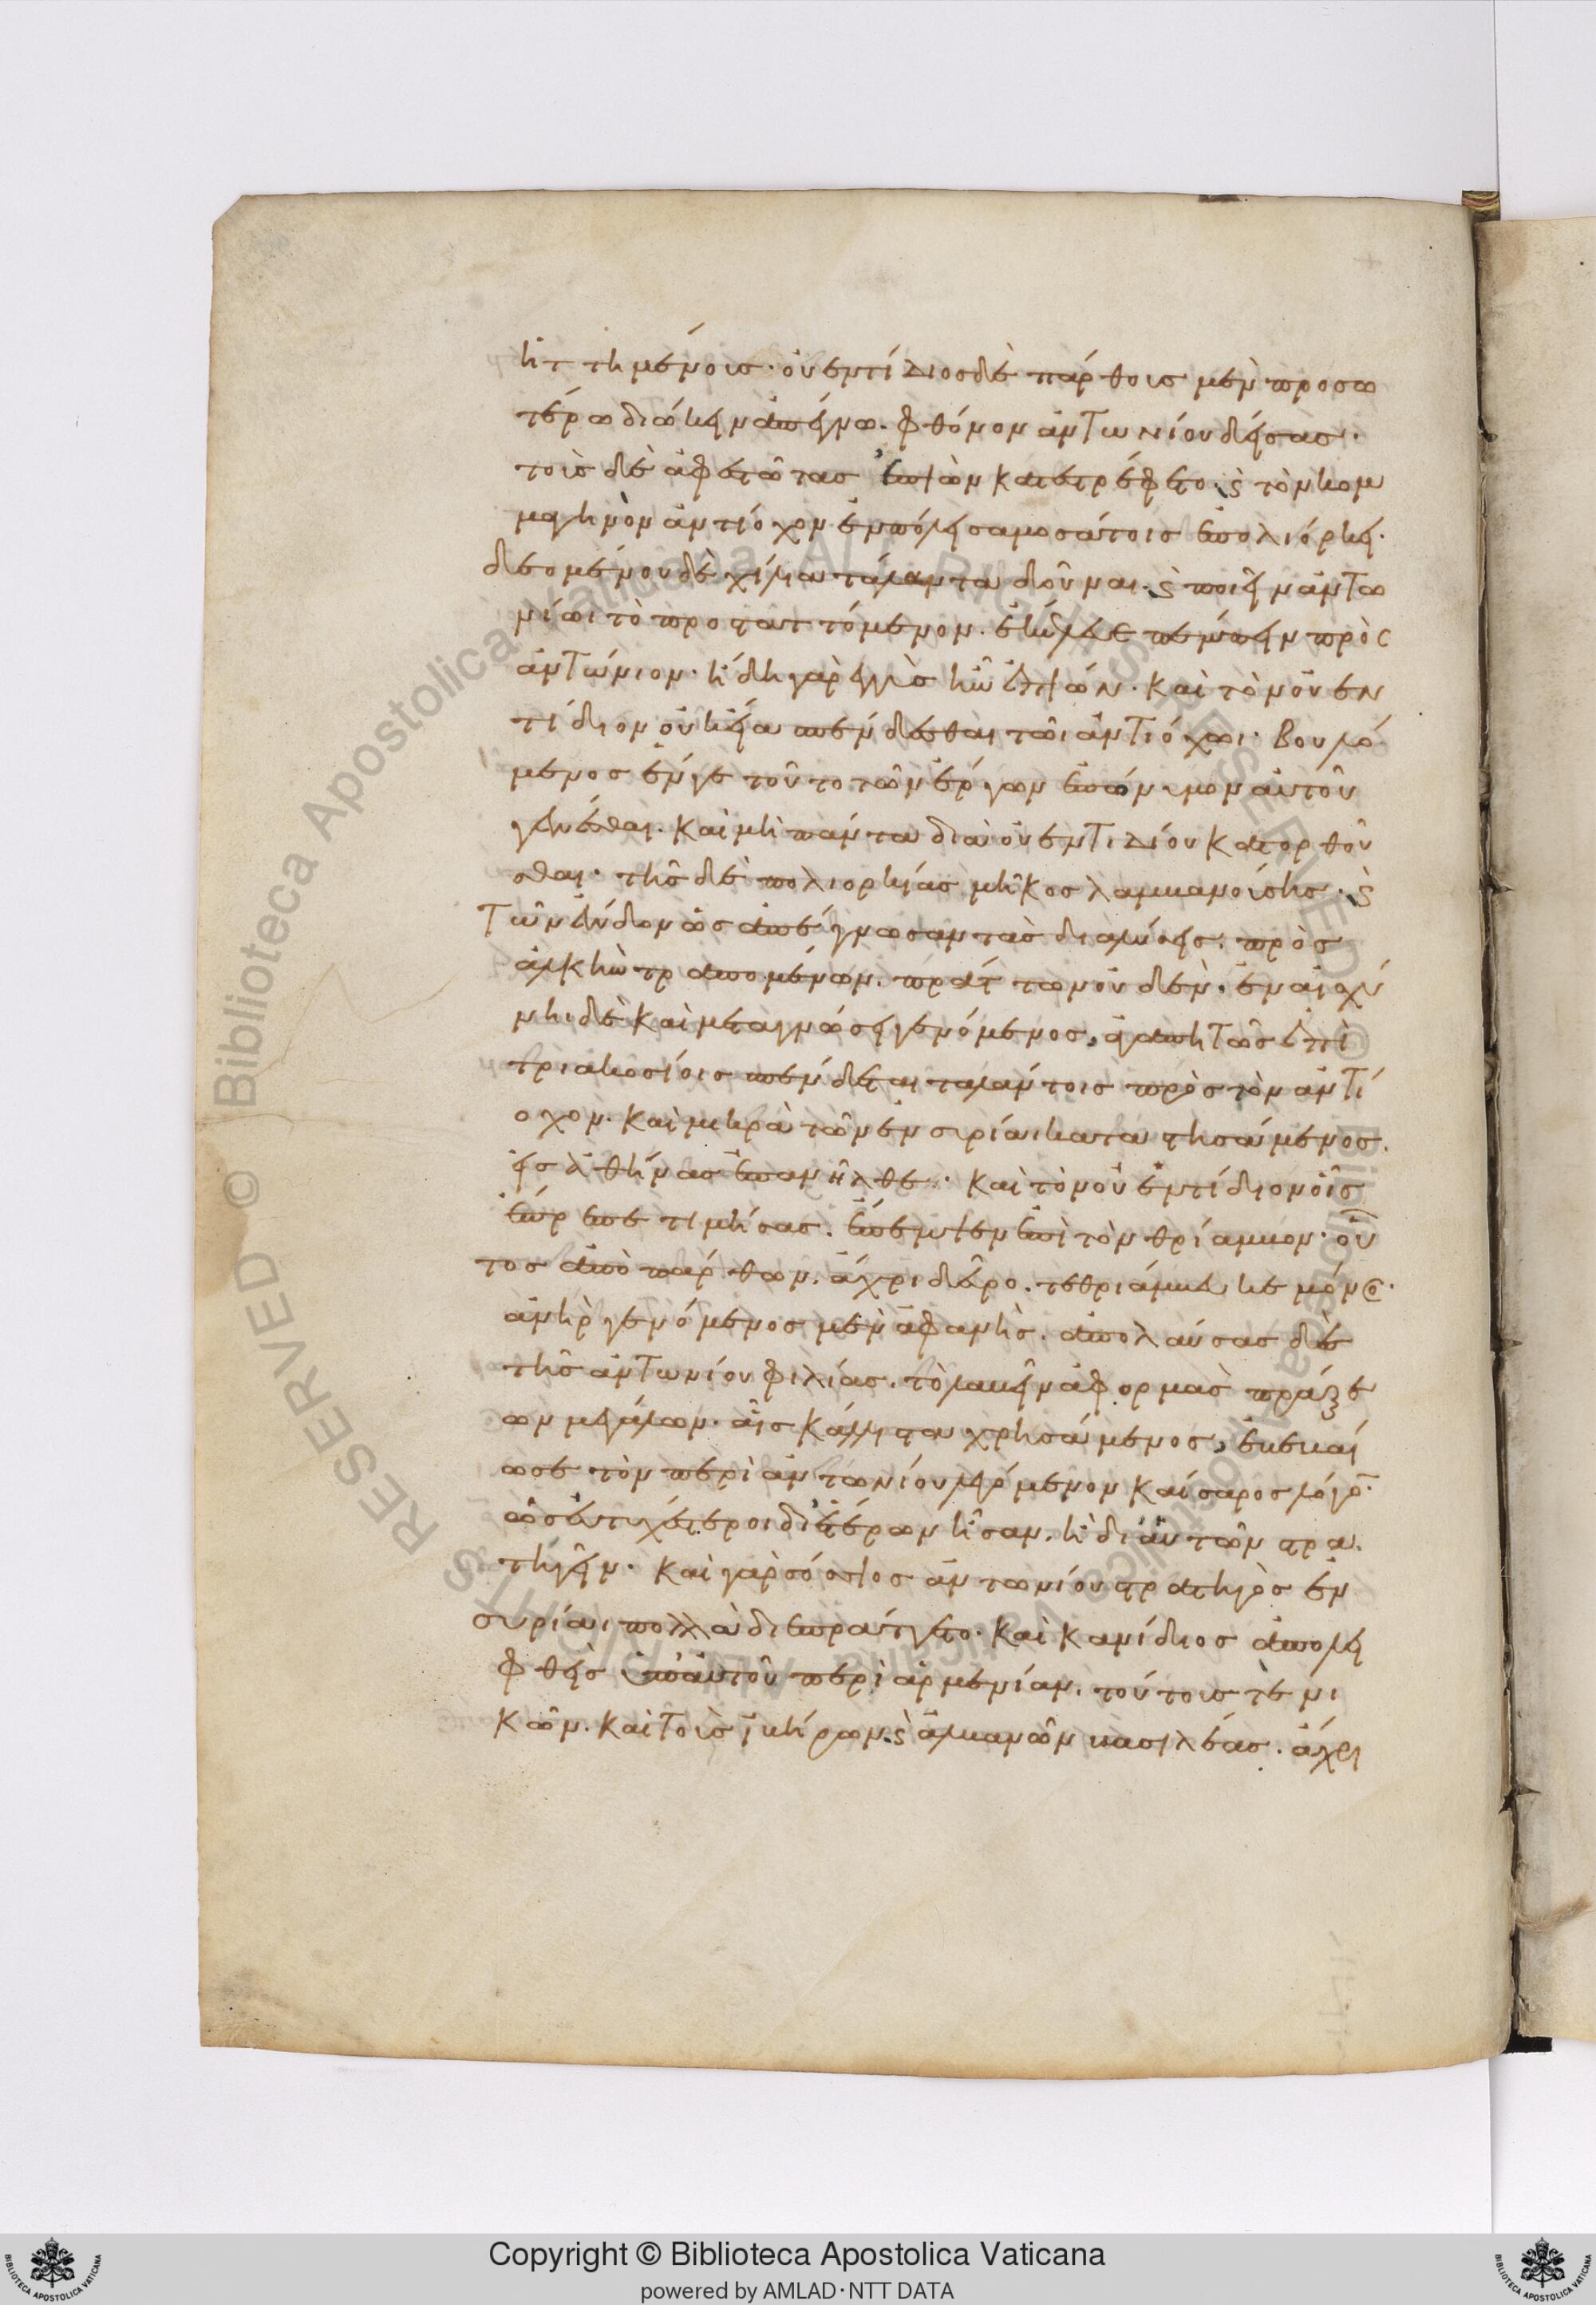 ἡττημένοις· οὐεντίδιος δὲ πάρθοις μὲν προσω
τέρω διώκειν ἀπέγνω. φθόνον ἀντωνίου δείσας·
τοὺς δὲ ἀφεστῶτας ἐπιὼν κατεστρέφετο. ϛ τὸν κομ
μαγηνὸν ἀντίοχον ἐν πόλει σαμοσάτοις ἐπολιόρκει·
δεομένου δὲ χίλια τάλαντα δοῦναι. ϛ ποιεῖν ἀντω
νίωι τὸ προσταττόμενον. ἐκέλευε πέμπειν πρὸς
ἀντώνιον· ἤδη γὰρ ἐγγὺς ἦν ἐπιών. καὶ τὸν οὐεν
τίδιον οὐκ εἴα σπένδεσθαι τῶι ἀντιόχωι· βουλό
μενος ἕν γε τοῦτο τῶν ἔργων ἐπώνυμον αὐτοῦ
γενέσθαι. καὶ μὴ πάντα διὰ οὐεντιδίου κατορθοῦ
σθαι· τῆς δὲ πολιορκίας μῆκος λαμβανούσης. ϛ
τῶν ἔνδον ὡς ἀπέγνωσαν τὰς διαλύσεις. πρὸς
ἀλκὴν τραπομένων. πράττων οὐδὲν. ἐν αἰσχύ
νηι δὲ καὶ μεταγνώσει γενόμενος, ἀγαπητῶς ἐπὶ
τριακοσίοις σπένδεται ταλάντοις πρὸς τὸν ἀντί
οχον. καὶ μικρὰ τῶν ἐν συρίαι καταστησάμενος.
εἰς ἀθήνας ἐπανῆλθε· καὶ τὸν οὐεντίδιον οἷς
ἔπρεπε τιμήσας. ἔπεμψεν ἐπὶ τὸν θρίαμβον· οὗ
τος ἀπὸ πάρθων. ἄχρι δεῦρο. τεθριάμβευκε μόνος·
ἀνὴρ γενόμενος μὲν ἀφανὴς. ἀπολαύσας δὲ
τῆς ἀντωνίου φιλίας. τὸ λαβεῖν ἀφορμὰς πράξε
ων μεγάλων· αἷς κάλλιστα χρησάμενος, ἐβεβαί
ωσε τὸν περὶ ἀντωνίου λεγόμενον καίσαρος λόγον·
ὡς εὐτυχέστεροι δι' ἑτέρων ἦσαν. ἢ δι' αὐτῶν στρα
τηγεῖν· καὶ γὰρ σόσσιος ἀντωνίου στρατηγὸς ἐν
συρίαι πολλὰ διεπράττετο. καὶ κανίδιος ἀπολει
φθεὶς ὑπ' αὐτοῦ περὶ ἀρμενίαν. τούτους τε νι
κῶν. καὶ τοὺς ἰβήρων. ϛ ἀλβανῶν βασιλέας. ἄχρι
Copyright © Biblioteca Apostolica Vaticana
powered by AMLAD·NTT DATA